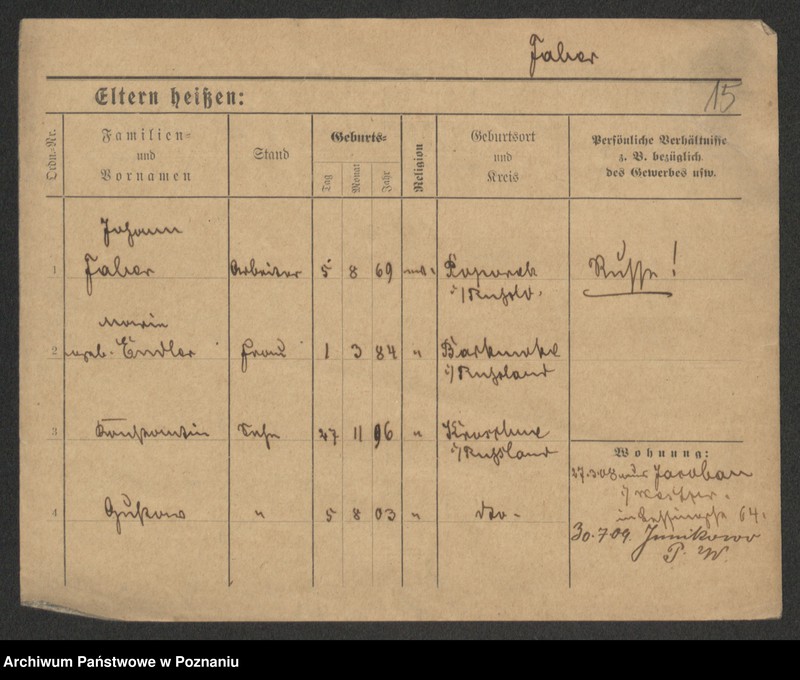 Faber
15
Eltern heißen:
Ordn.-Nr.
Familien-
und
Vornamen
Stand
Geburts-
Tag
Monat
Jahr
Religion
Geburtsort
und
Kreis
Persönliche Verhältnisse
z. B. bezüglich
des Gewerbes usw.
Johann
1 Faber Arbeiter 5 8 69
i/Rußld.
Russe!
Maria
2 geb. Endler Frau 1 3 84 "
i/Russland
3 Konstantin Sohn 27 11 96 "
i/Russland
4 Gustav " 5 8 03 " dto-
Wohnung:
27.3.08 aus
64.
30.7.09. Junikowo
P. W.
Archiwum Państwowe w Poznaniu